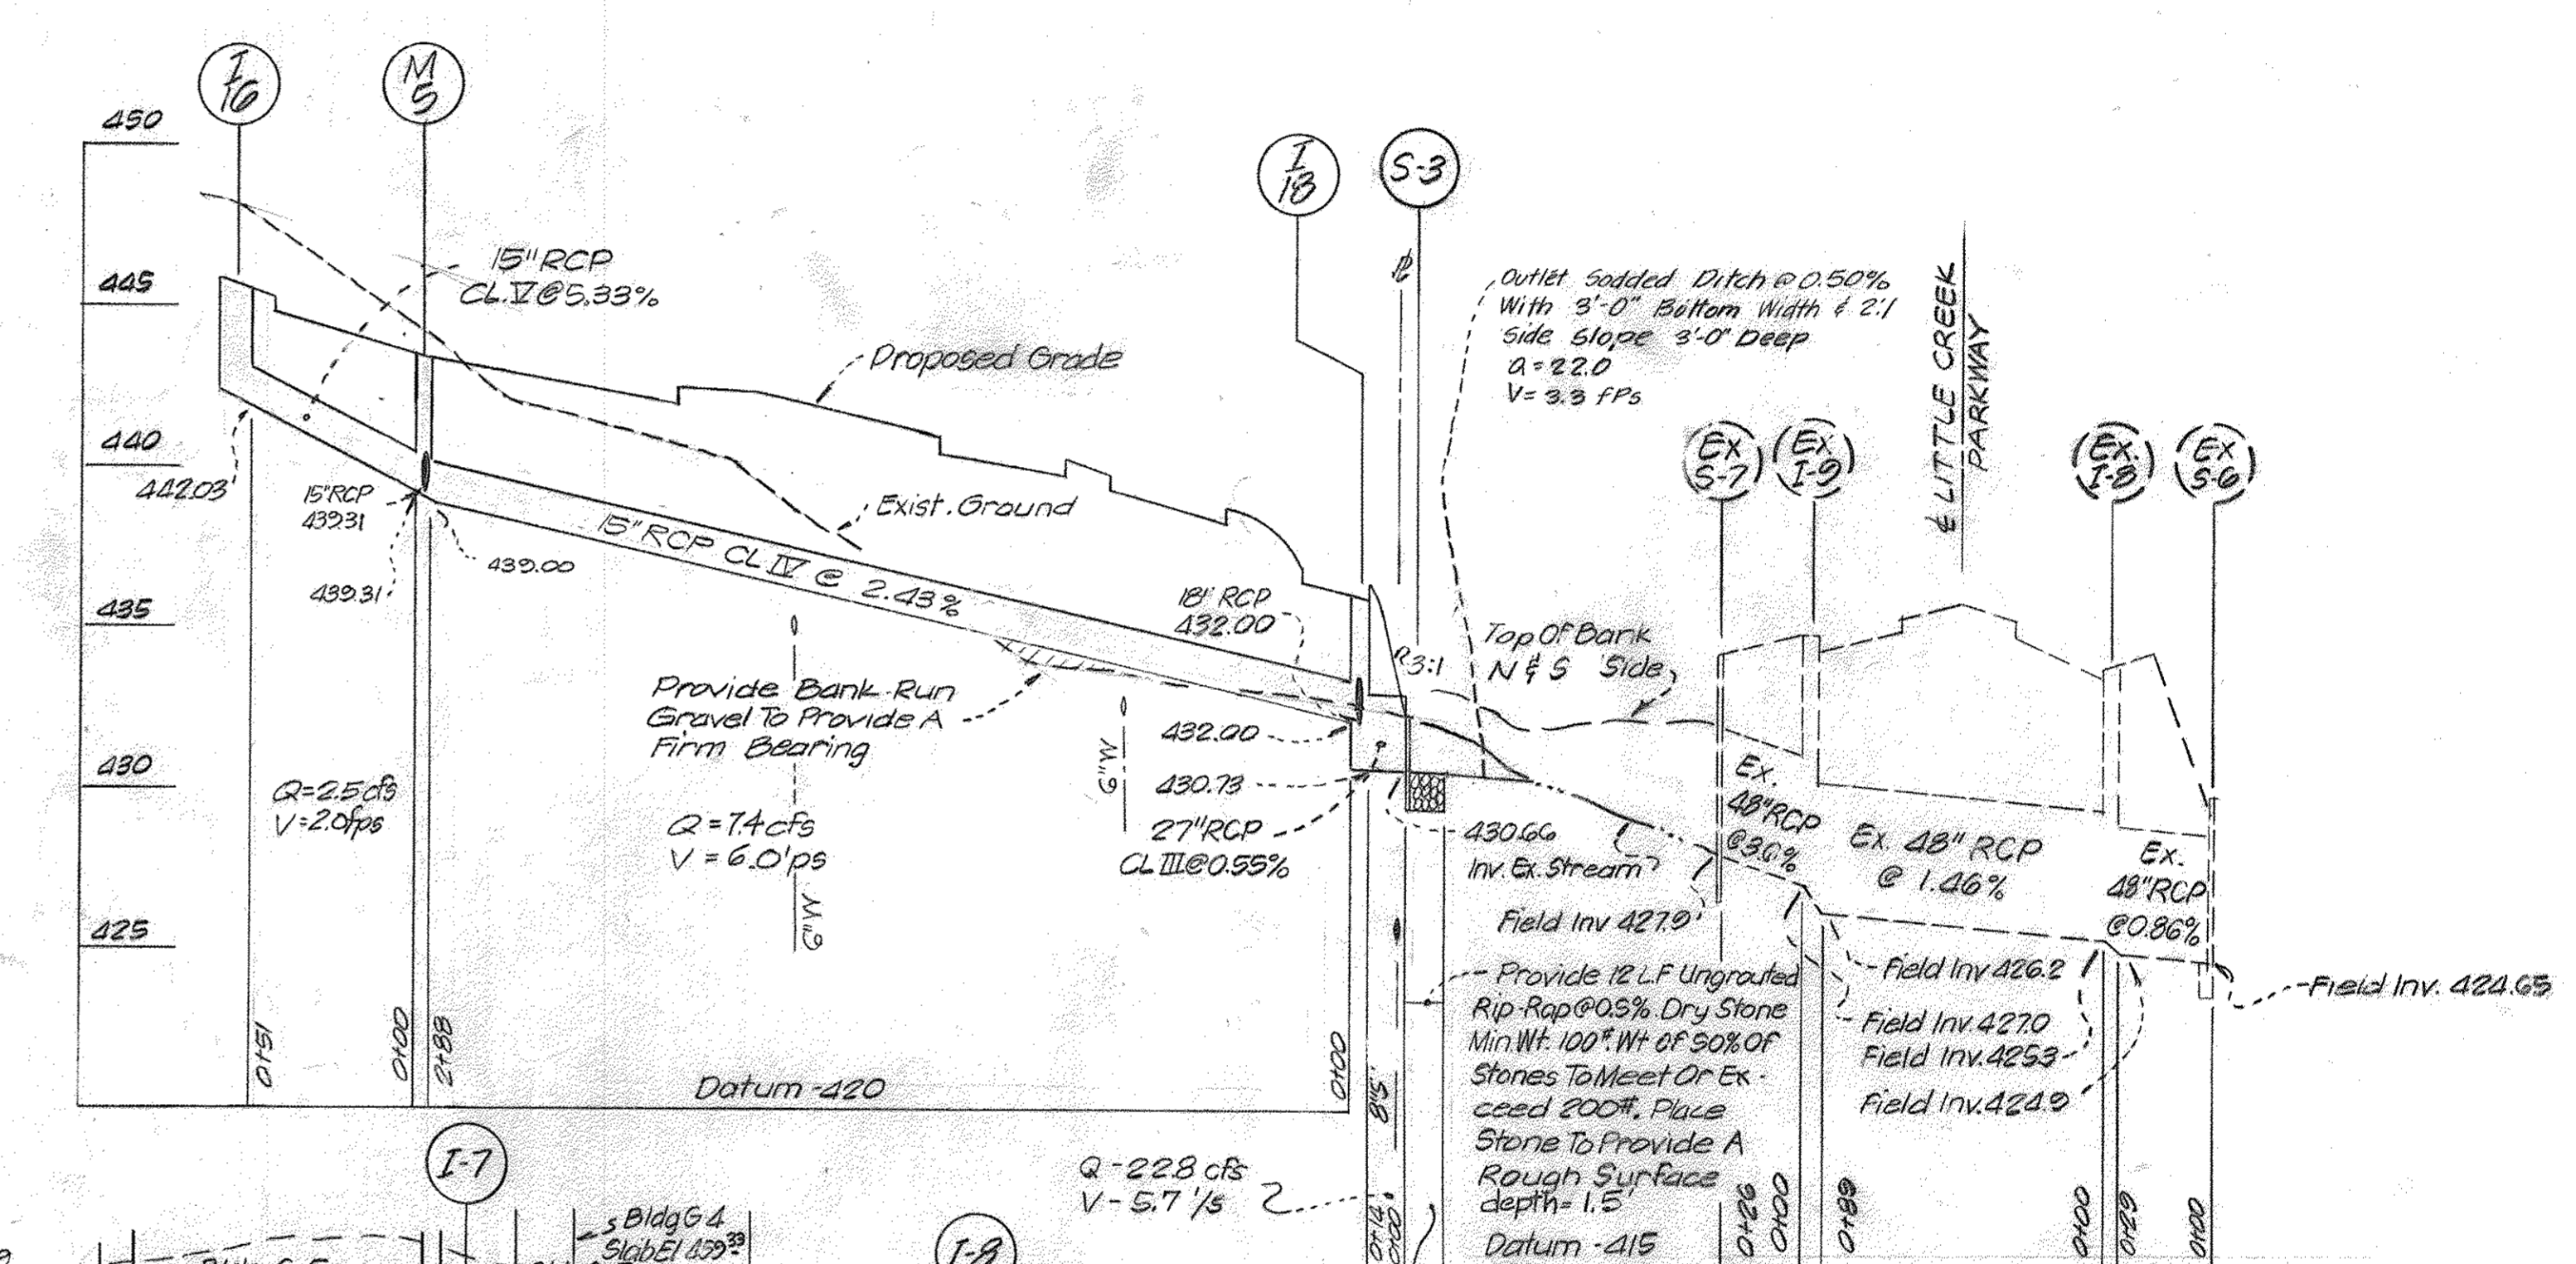 I
16
M
5
I
18
S-3
450
445
440
435
430
425
15" RCP
CL. V @ 5.33%
Proposed Grade
Exist. Ground
442.03
15"RCP
439.31
439.31
439.00
15" RCP CL IV @ 2.43%
Provide Bank Run
Gravel To Provide A
Firm Bearing
Q=2.5 cfs
V=2.0fps
Q=7.4 cfs
V = 6.0'ps
6"W
6"W
18" RCP
432.00
432.00
430.73
27"RCP
CL III @ 0.55%
430.66
Inv. Ex. Stream
3:1
Outlet Sodded Ditch @ 0.50%
With 3'-0" Bottom Width & 2:1
Side Slope 3'-0" Deep
Q = 22.0
V = 3.3 fPs
Top Of Bank
N & S Side
℄ LITTLE CREEK
PARKWAY
Ex
S-7
Ex
I-9
Ex.
I-8
Ex
S-6
Ex.
48"RCP
@3.0%
Ex. 48" RCP
@ 1.46%
Ex.
48"RCP
@0.86%
Field Inv 427.9
Field Inv 426.2
Field Inv. 427.0
Field Inv. 425.3
Field Inv. 424.9
Field Inv. 424.65
Provide 12 L.F Ungrouted
Rip-Rap @ 0.5% Dry Stone
Min Wt. 100#. Wt Of 50% Of
Stones To Meet Or Ex-
ceed 200#. Place
Stone To Provide A
Rough Surface
depth = 1.5'
Datum - 415
0+51
0+00
2+88
Datum - 420
0+00
8"S
0+14
0+00
0+26
0+00
0+89
0+00
0+29
0+00
Q - 22.8 cfs
V - 5.7 '/s
I-7
Bldg G 4
Slab El 439.33
I-8